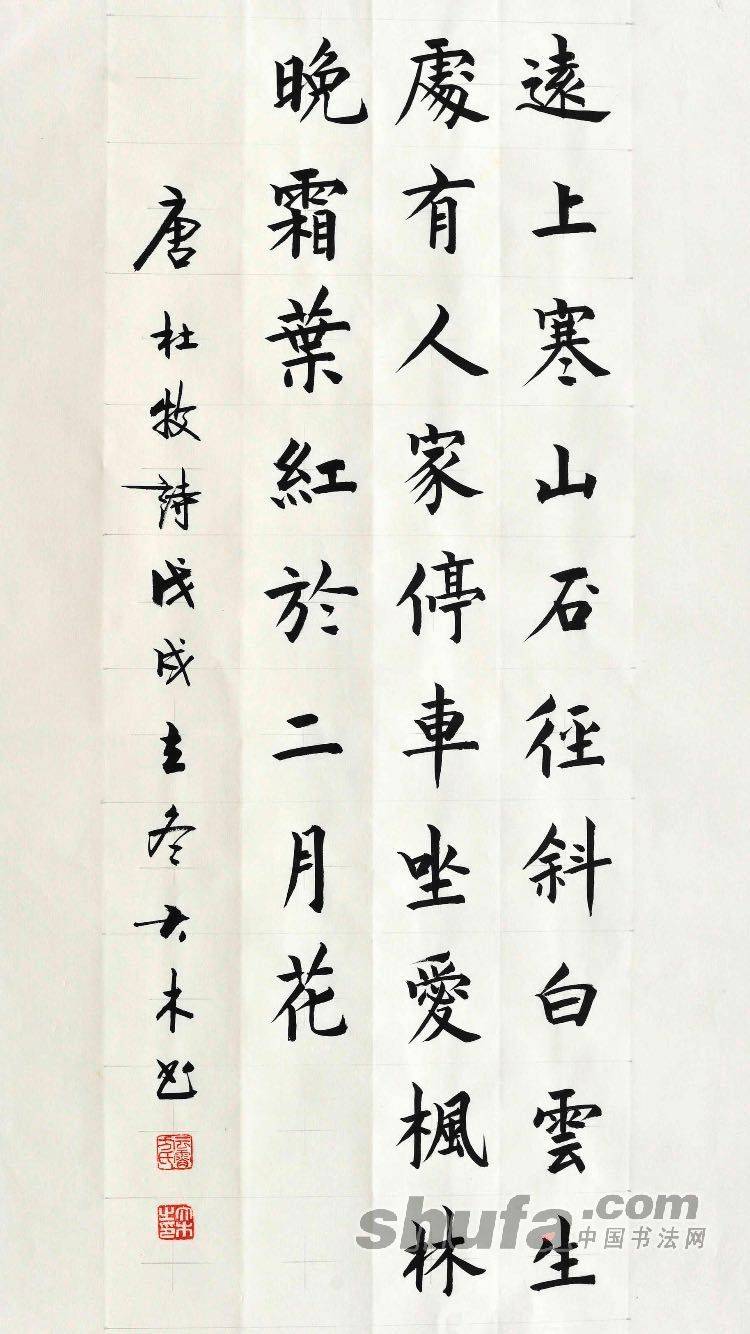 遠上寒山石徑斜白雲生
處有人家停車坐愛楓林
晚霜葉紅於二月花
唐杜牧詩戊戌立冬大木书
shufa.com
中国书法网